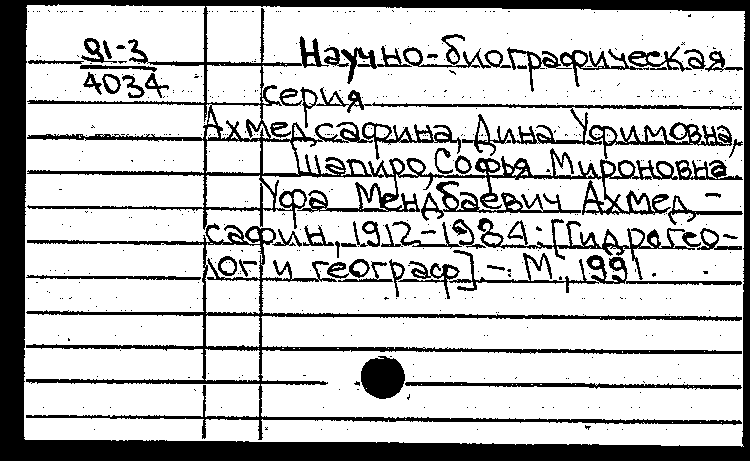 91-3
4034
Научно-биографическая
серия
Ахмедсафина, Дина Уфимовна,
Шапиро, Софья Мироновна
Уфа Мендбаевич Ахмед-
сафин, 1912-1984: [Гидрогео-
лог и географ]. - М., 1991.